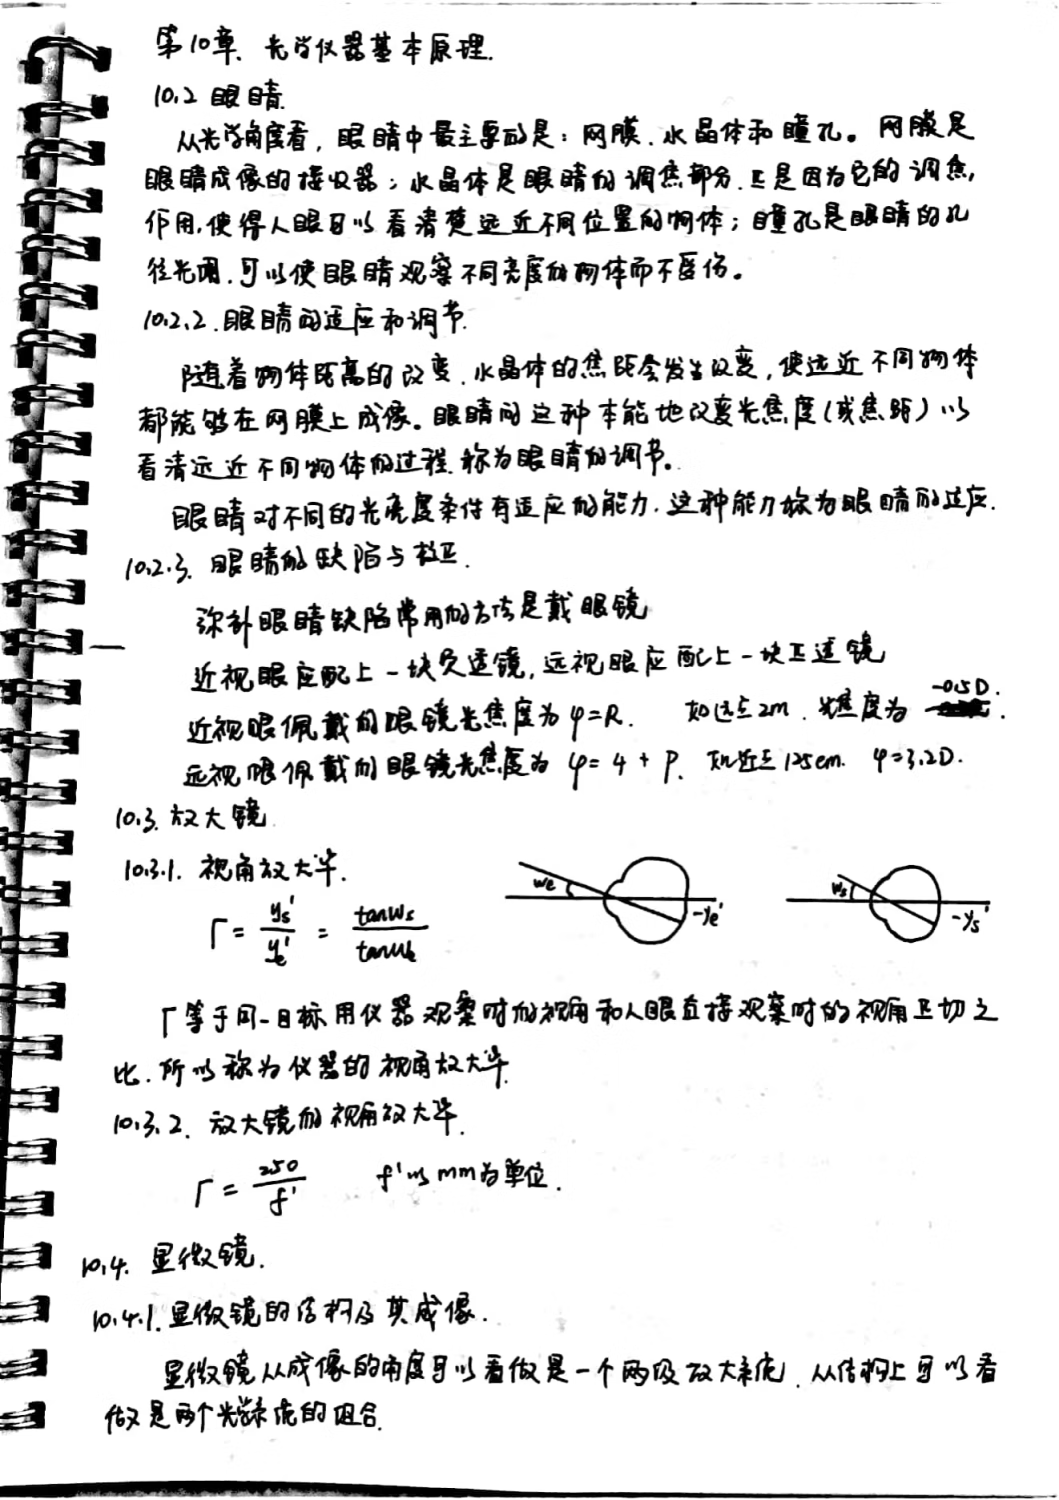 第10章. 光学仪器基本原理.
10.2 眼睛.
从光学角度看，眼睛中最主要的是：网膜、水晶体和瞳孔。网膜是
眼睛成像的接收器；水晶体是眼睛的调焦部分.正是因为它的调焦,
作用,使得人眼可以看清楚远近不同位置的物体；瞳孔是眼睛的孔
径光阑.可以使眼睛观察不同亮度的物体而不受伤。
10.2.2.眼睛的适应和调节.
随着物体距离的改变.水晶体的焦距会发生改变,使远近不同物体
都能够在网膜上成像。眼睛的这种本能地改变光焦度(或焦距)以
看清远近不同物体的过程.称为眼睛的调节。
眼睛对不同的光亮度条件有适应的能力.这种能力称为眼睛的适应.
10.2.3. 眼睛的缺陷与校正.
弥补眼睛缺陷常用的方法是戴眼镜
近视眼应配上一块负透镜,远视眼应配上一块正透镜
近视眼佩戴的眼镜光焦度为 φ=R. 如远点2m. 光焦度为 -0.5D.
远视眼佩戴的眼镜光焦度为 φ= 4 + P. 如近点125cm. φ=3.2D.
10.3. 放大镜
10.3.1. 视角放大率.
We -ye' Ws -ys'
Γ = ys'/ye' = tanWs/tanWe
Γ等于同一目标用仪器观察时的视角和人眼直接观察时的视角正切之
比.所以称为仪器的视角放大率.
10.3.2. 放大镜的视角放大率.
Γ = 250/f' f'以mm为单位.
10.4. 显微镜.
10.4.1.显微镜的结构及其成像.
显微镜从成像的角度可以看做是一个两级放大系统.从结构上可以看
做是两个光学系统的组合.